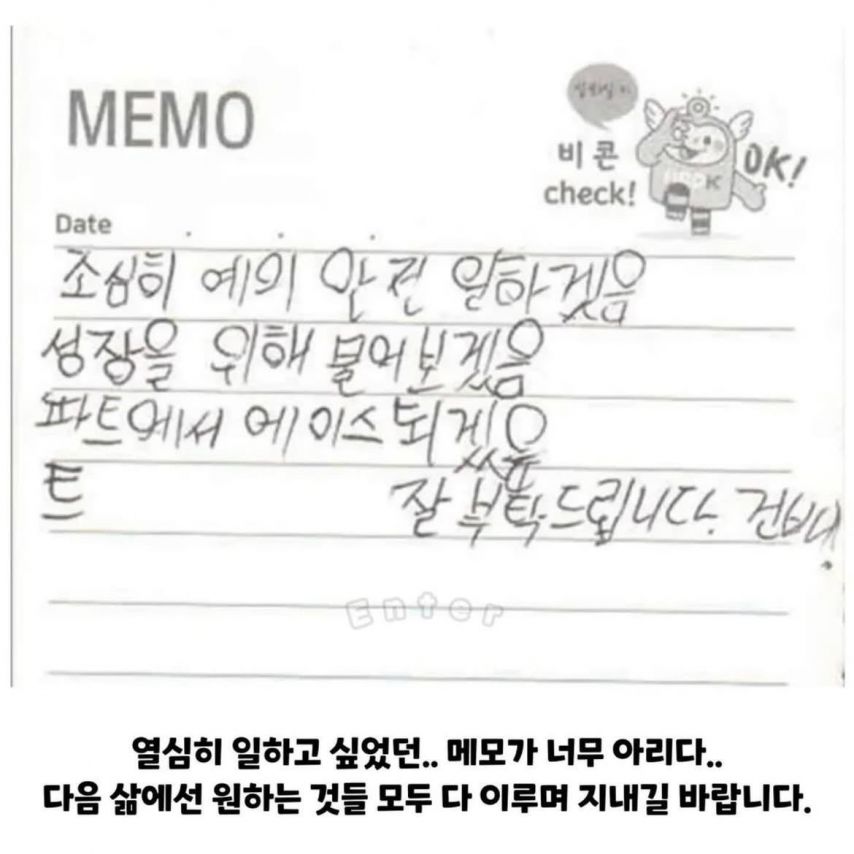 MEMO
비콘
check!
OK!
Date
조심히 예의 안전 일하겠음
성장을 위해 물어보겠음
파트에서 에이스 되겠음
트
잘 부탁드립니다. 건배
Enter
열심히 일하고 싶었던.. 메모가 너무 아리다..
다음 삶에선 원하는 것들 모두 다 이루며 지내길 바랍니다.